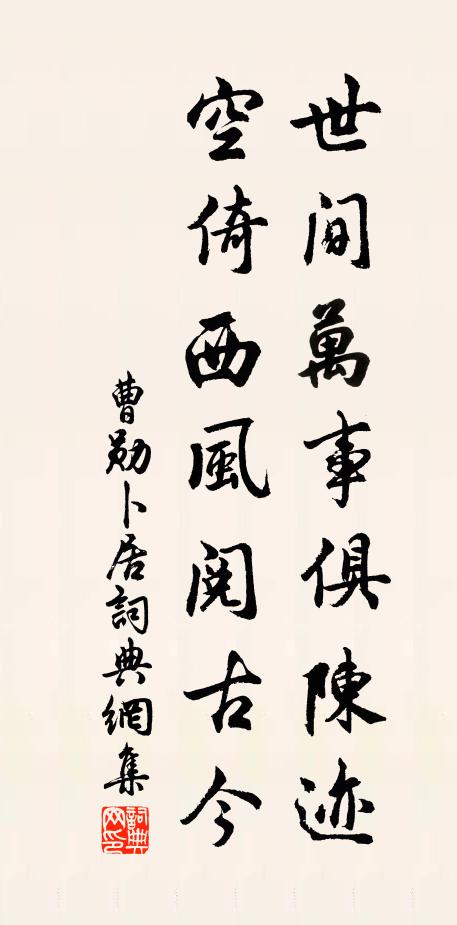 世间萬事俱陳迹
空倚西風閱古今
曹勛卜居詞典網集
詞典網印